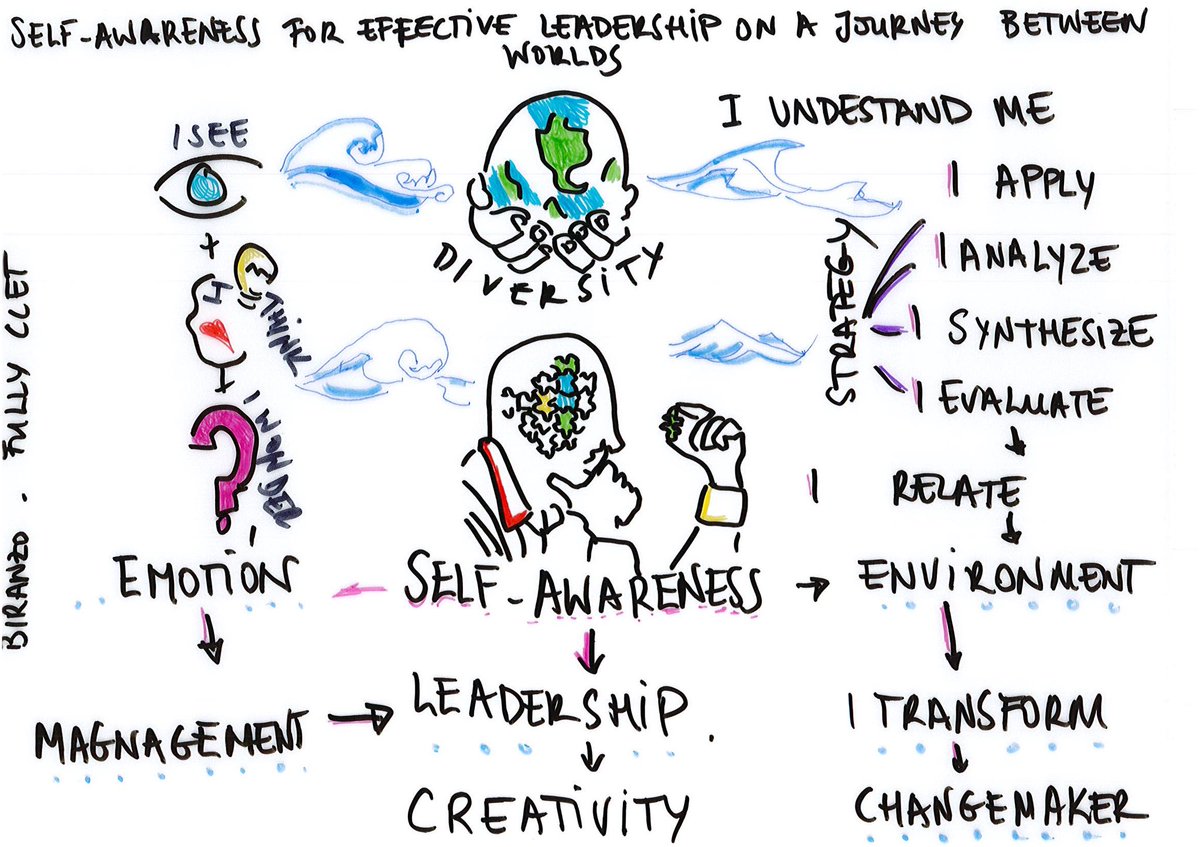 SELF-AWARENESS FOR EFFECTIVE LEADERSHIP ON A JOURNEY BETWEEN
WORLDS
I SEE
+
I THINK
+
?
DIVERSITY
I UNDESTAND ME
STRATEGY
I APPLY
I ANALYZE
I SYNTHESIZE
I EVALUATE
I RELATE
EMOTION
SELF-AWARENESS
ENVIRONMENT
MAGNAGEMENT
LEADERSHIP.
I TRANSFORM
CREATIVITY
CHANGEMAKER
BIRANZO . FULLY CLET